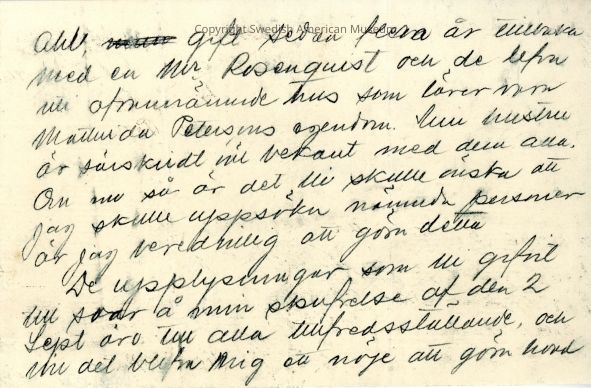 Copyright Swedish American Museum
Ahl, gift sedan flera år tillbaka
med en Mr Rosenquist och de lefva
uti ofvannämnde hus som lärer vara
Mathilda Petersons egendom. Min hustru
är särskildt väl bekant med dem alla.
Om nu så är det Ni skulle önska att
jag skulle uppsöka nämnda personer
är jag beredvillig att göra detta
De upplysningar som Ni gifvit
till svar å min skrifvelse af den 2
Sept äro till alla tillfredsställande, och
det blifva mig ett nöje att göra hvad